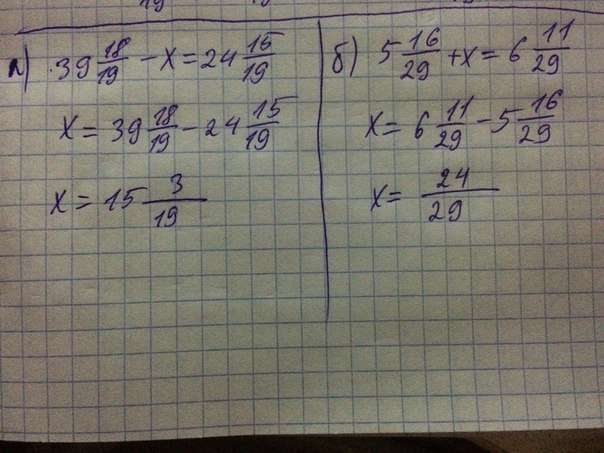 а) 39 18/19 - x = 24 15/19
x = 39 18/19 - 24 15/19
x = 15 3/19
б) 5 16/29 + x = 6 11/29
x = 6 11/29 - 5 16/29
x = 24/29